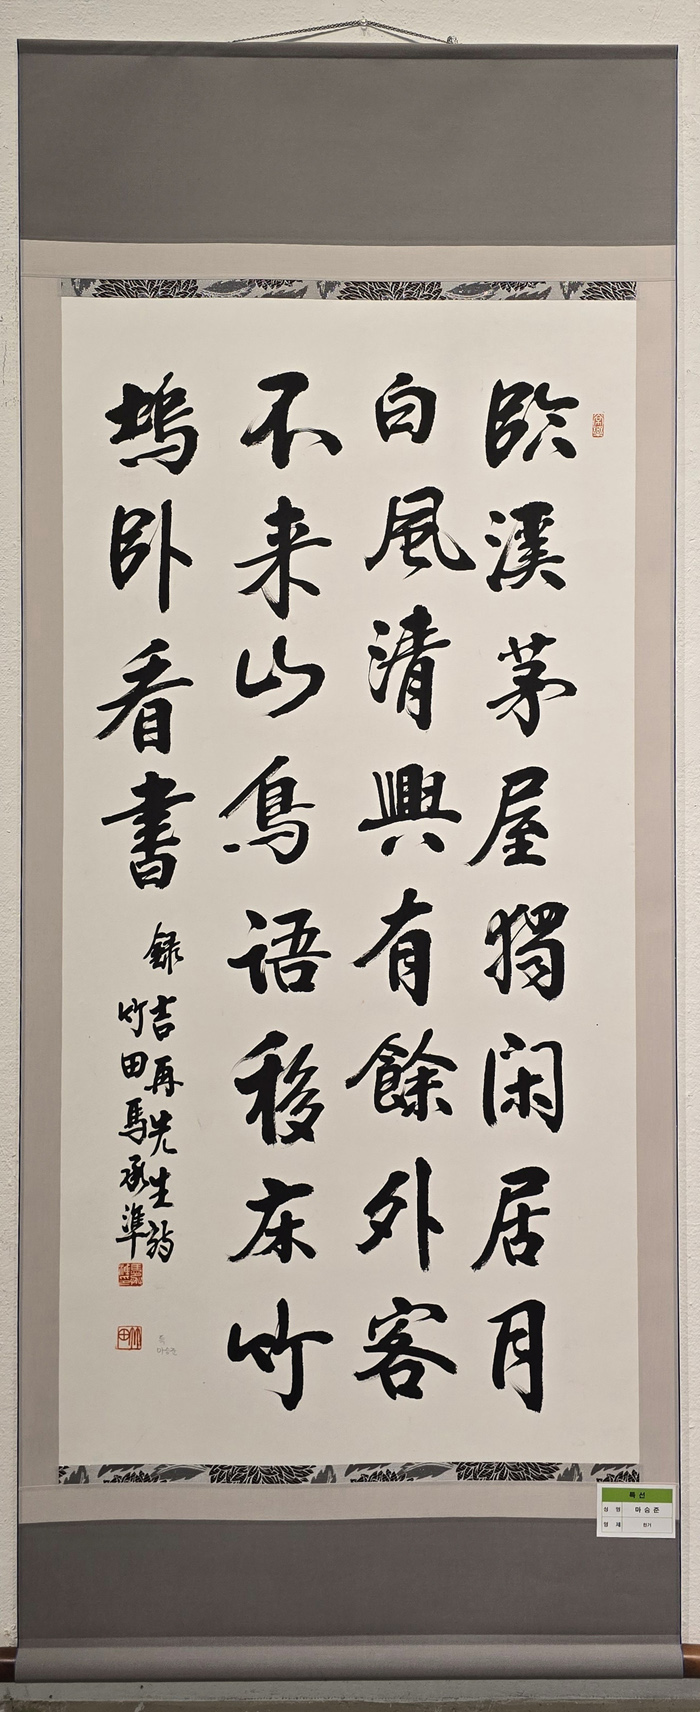 臨溪茅屋獨閑居月
白風清興有餘外客
不来山鳥語移床竹
塢卧看書
錄吉再先生詩
竹田馬承準
竹田
마승준
특선
성명 마승준
명제 한거